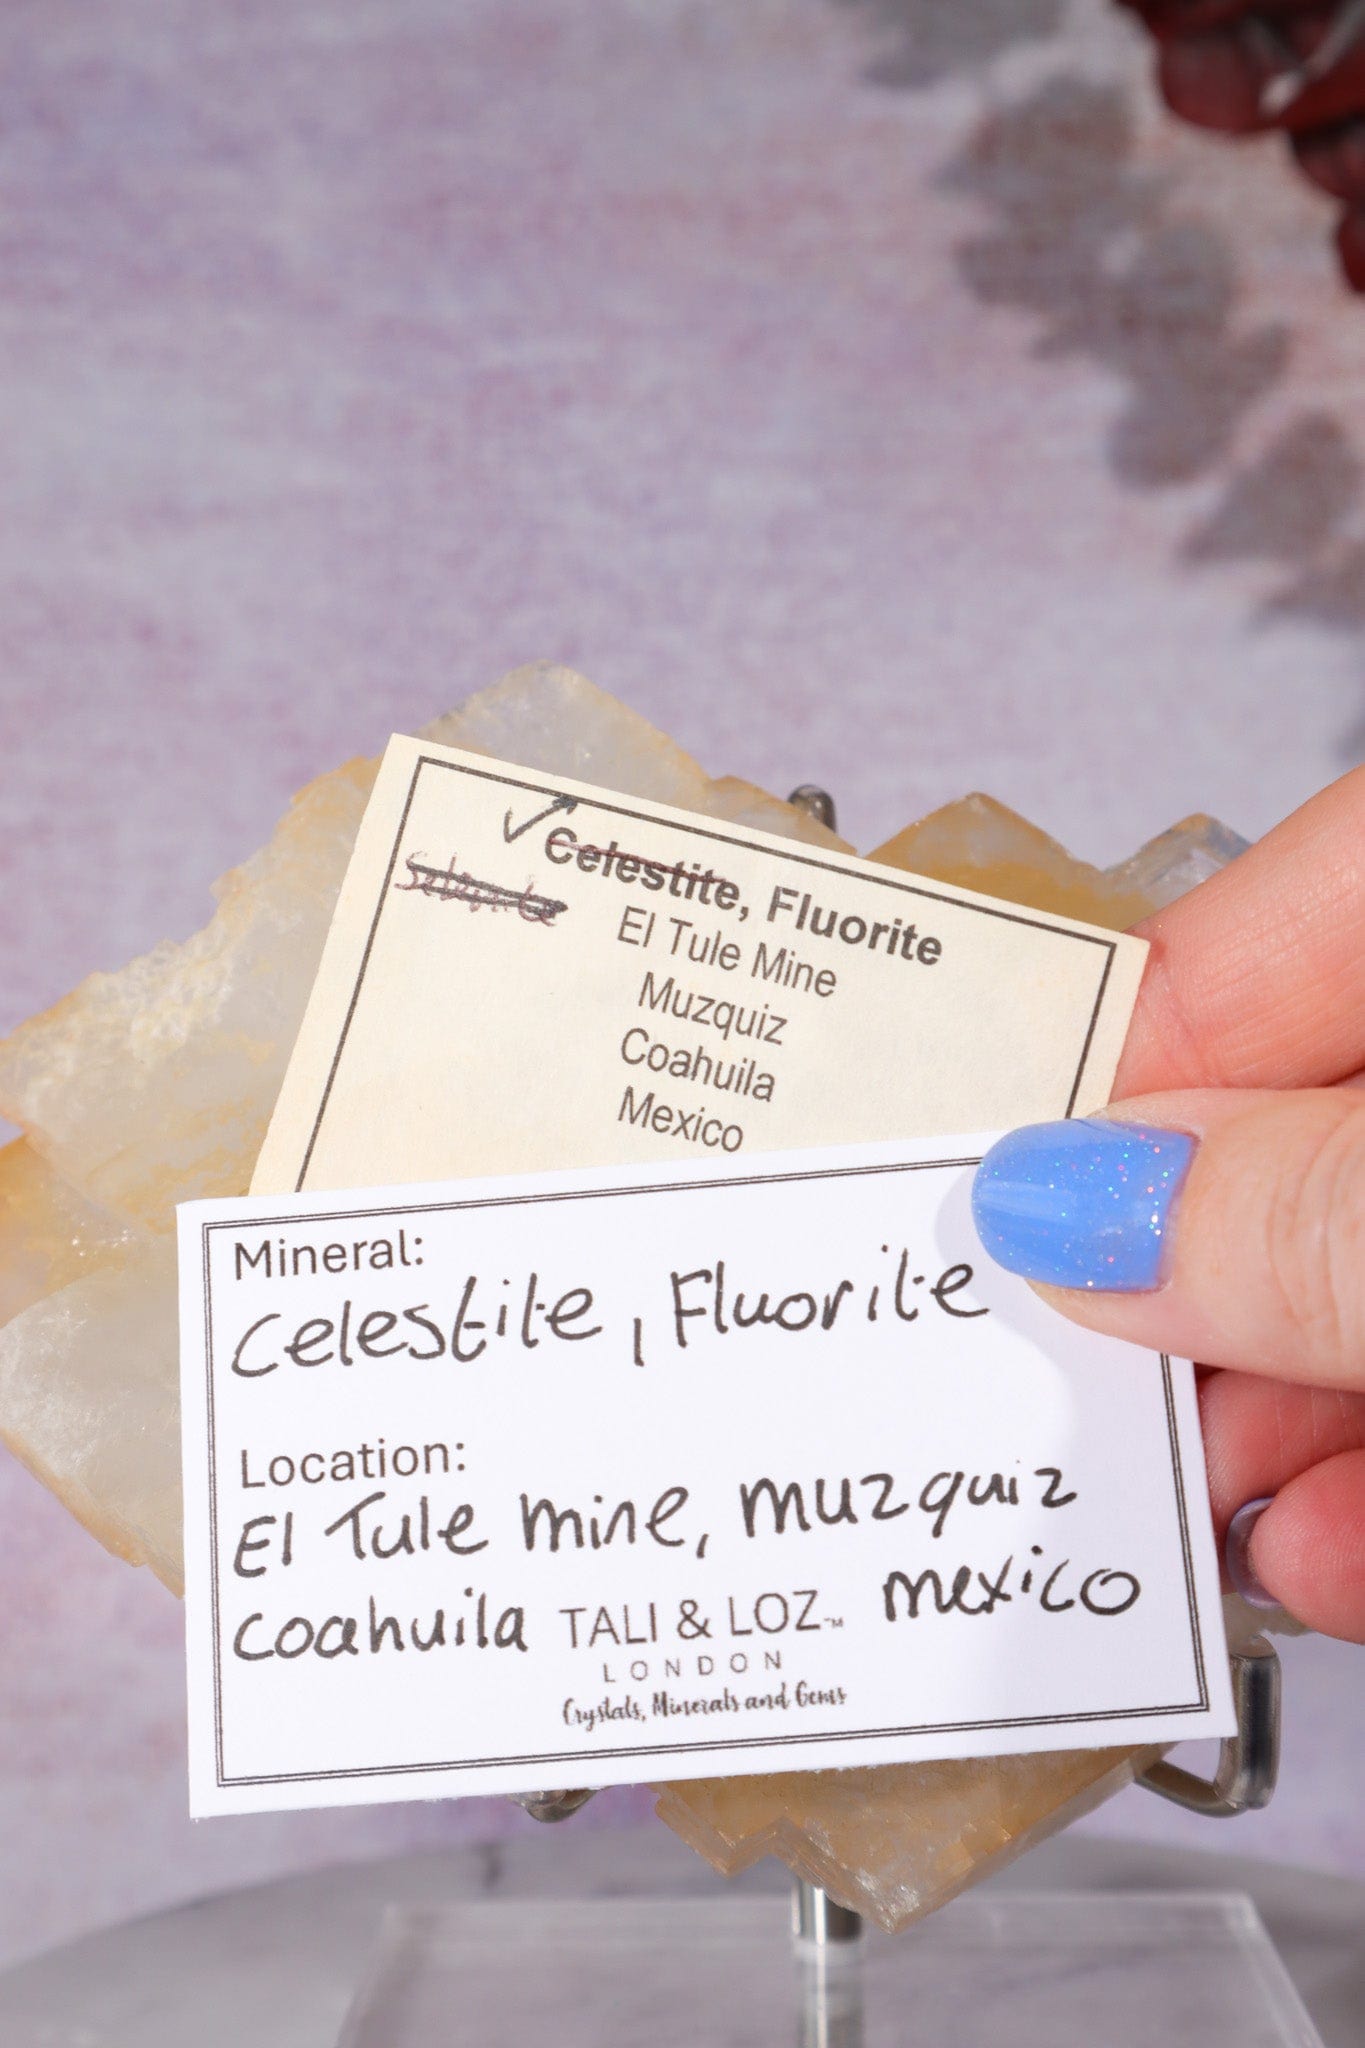 Celestite, Fluorite
Selenite
El Tule Mine
Muzquiz
Coahuila
Mexico
Mineral:
Celestite, Fluorite
Location:
El Tule mine, muzquiz
Coahuila mexico
TALI & LOZ™
LONDON
Crystals, Minerals and Gems